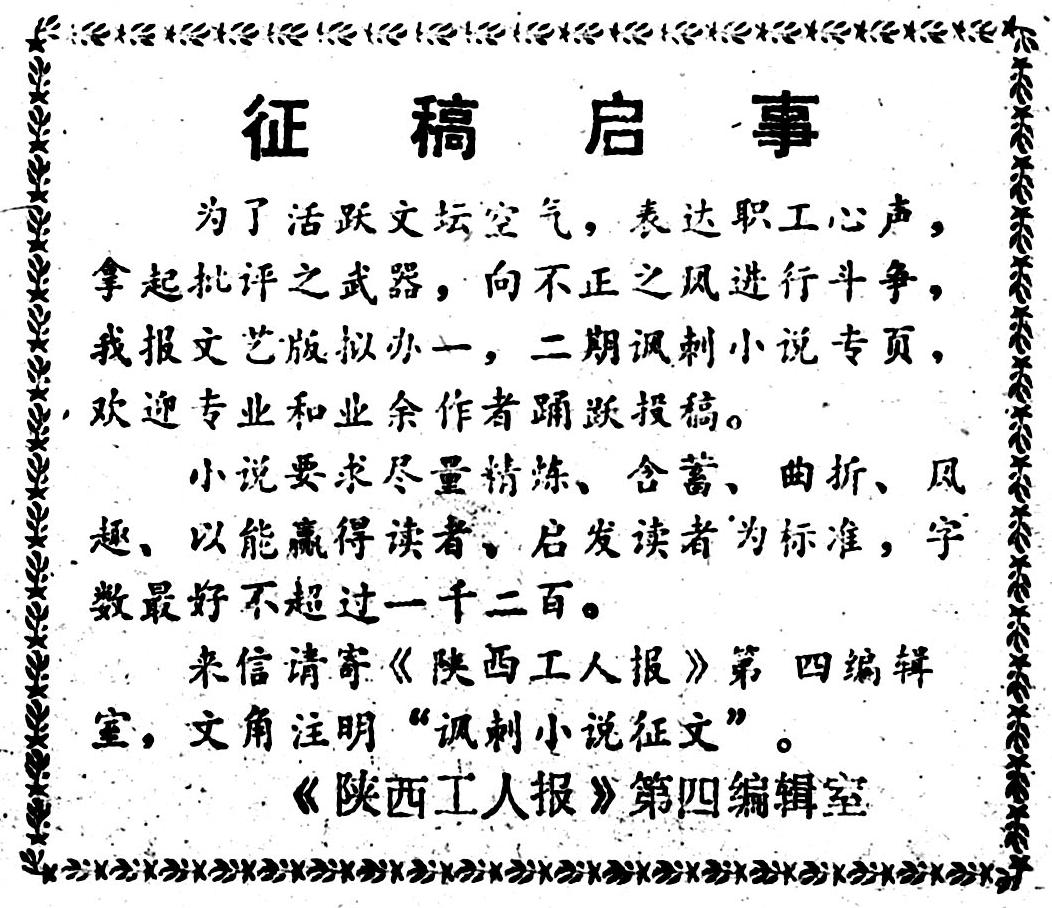 征稿启事
为了活跃文坛空气，表达职工心声，
拿起批评之武器，向不正之风进行斗争，
我报文艺版拟办一，二期讽刺小说专页，
欢迎专业和业余作者踊跃投稿。
小说要求尽量精炼、含蓄、曲折、风
趣、以能赢得读者、启发读者为标准，字
数最好不超过一千二百。
来信请寄《陕西工人报》第四编辑
室，文角注明“讽刺小说征文”。
《陕西工人报》第四编辑室